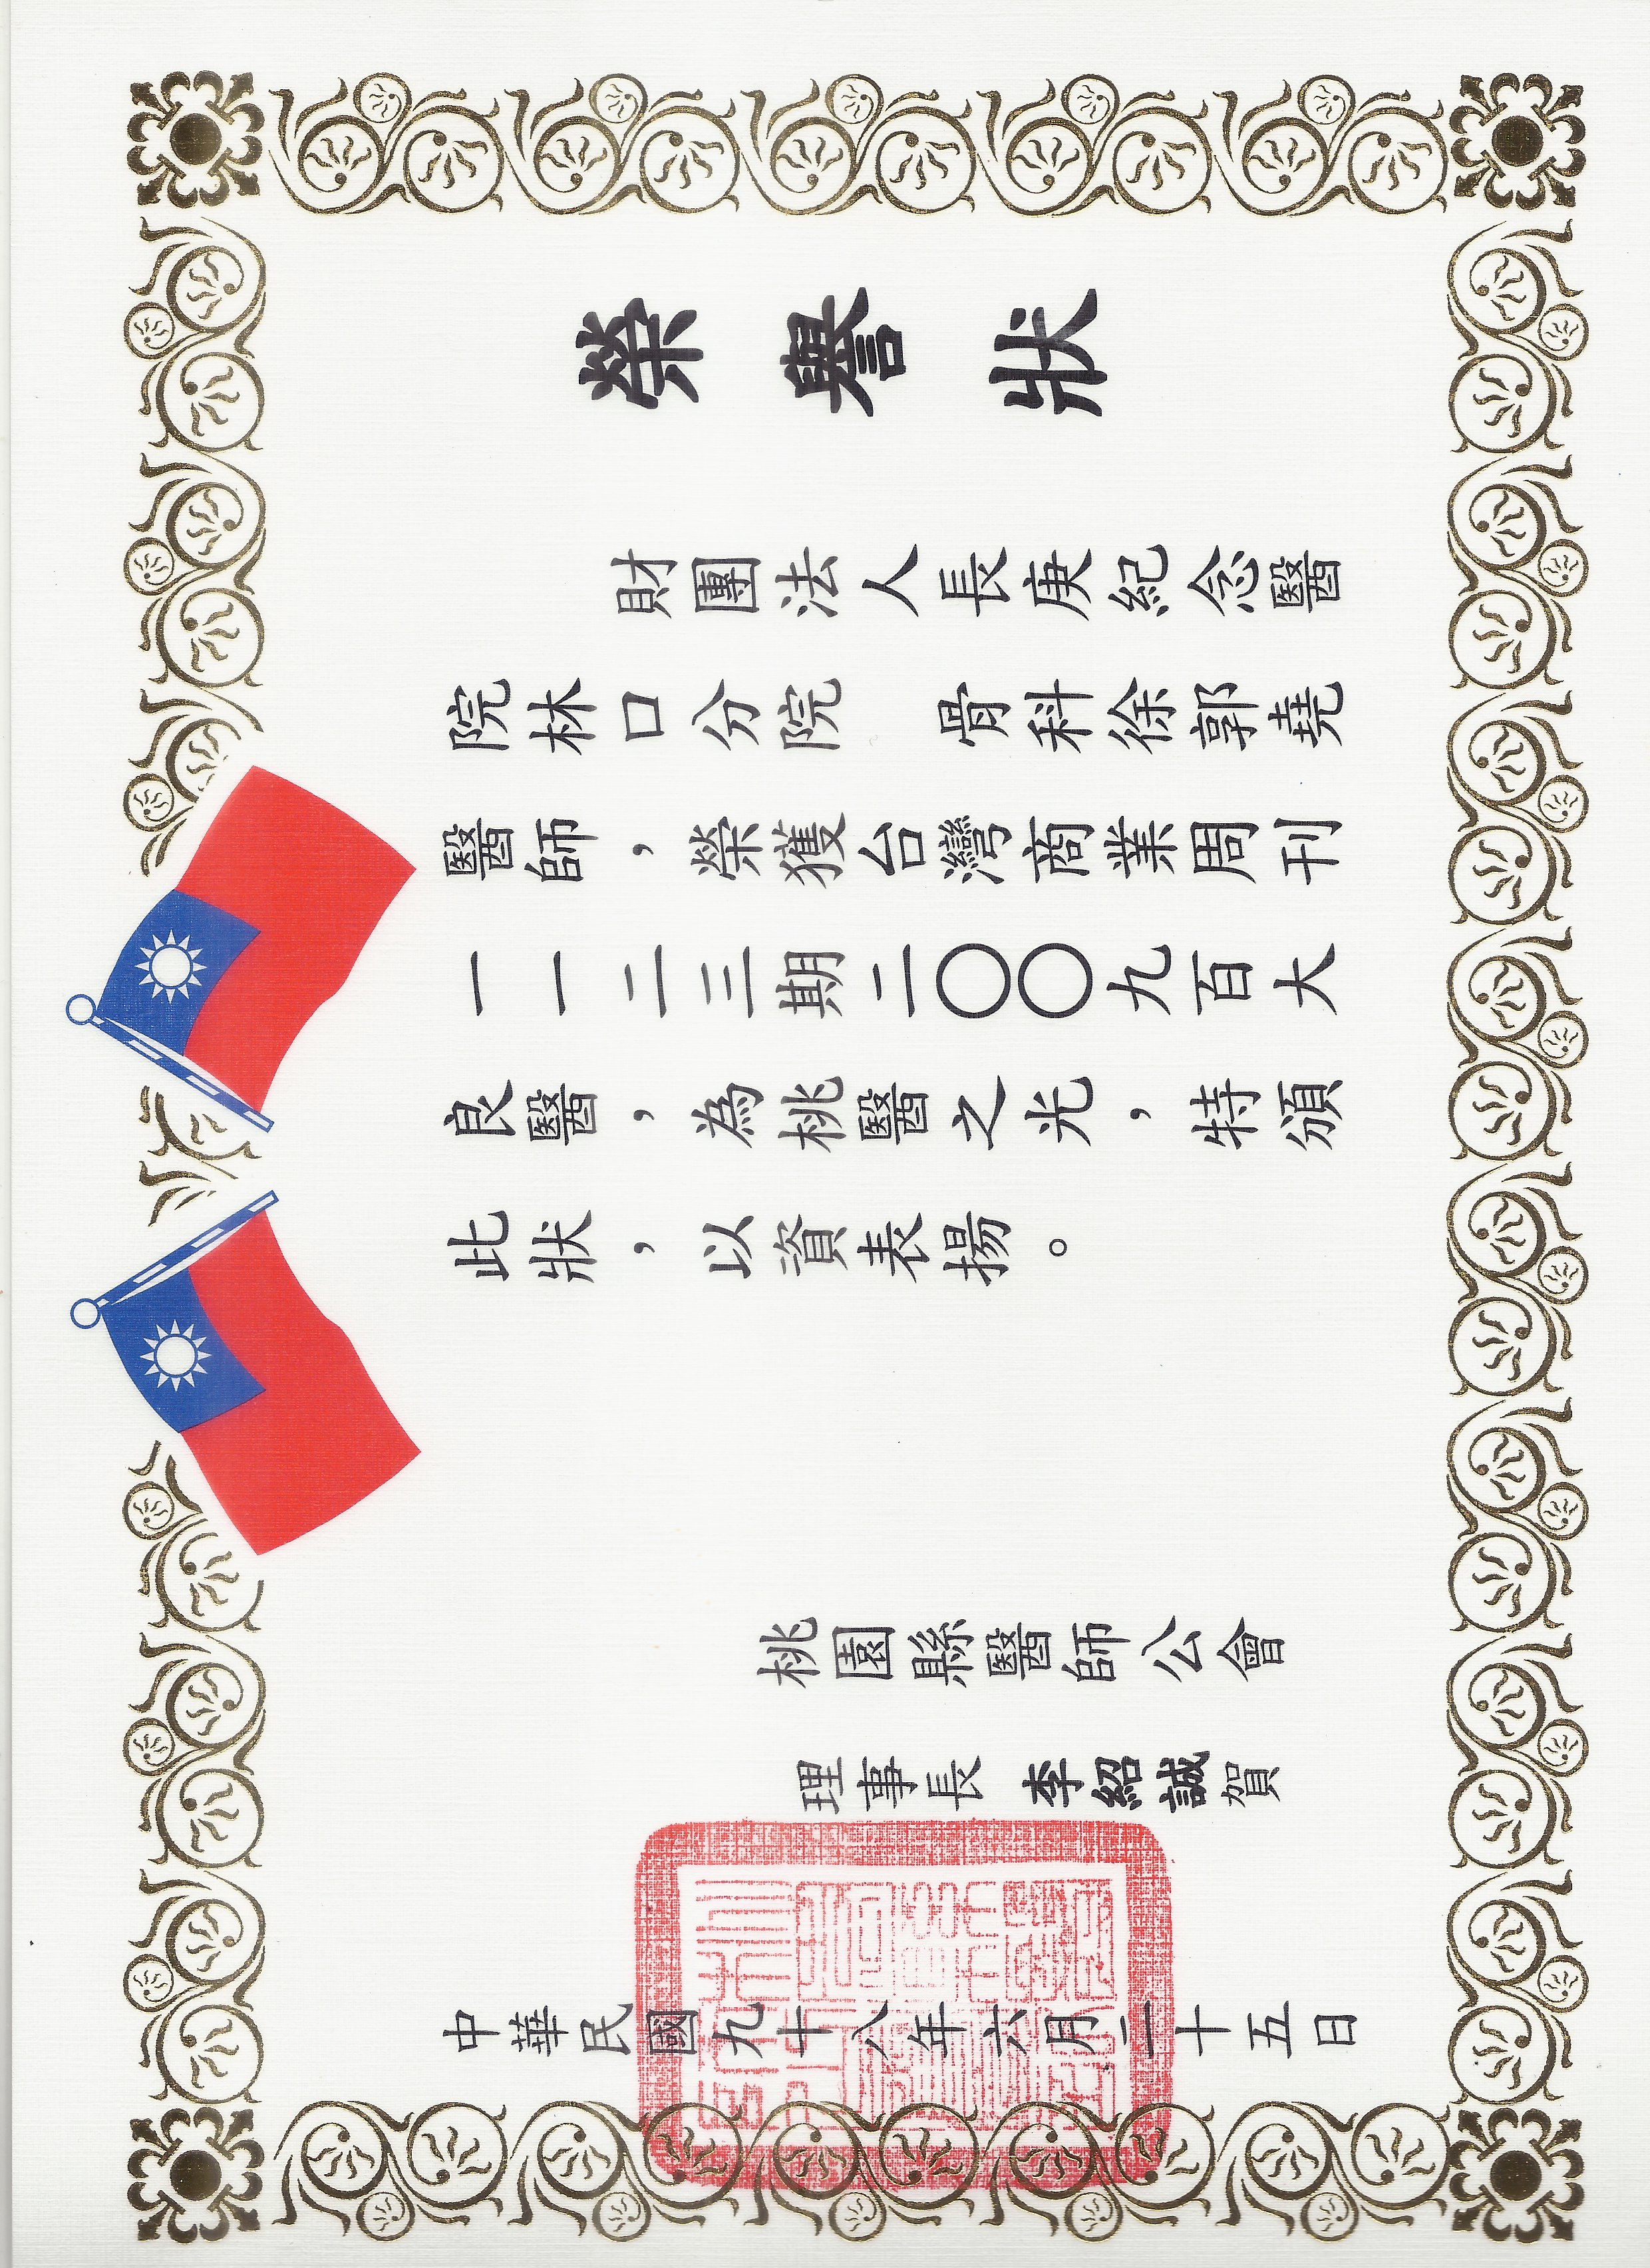 榮譽狀
財團法人長庚紀念醫
院林口分院　骨科徐郭堯
醫師，榮獲台灣商業周刊
一一二三期二〇〇九百大
良醫，為桃醫之光，特頒
此狀，以資表揚。
桃園縣醫師公會
理事長 李紹誠賀
中華民國九十八年六月二十五日